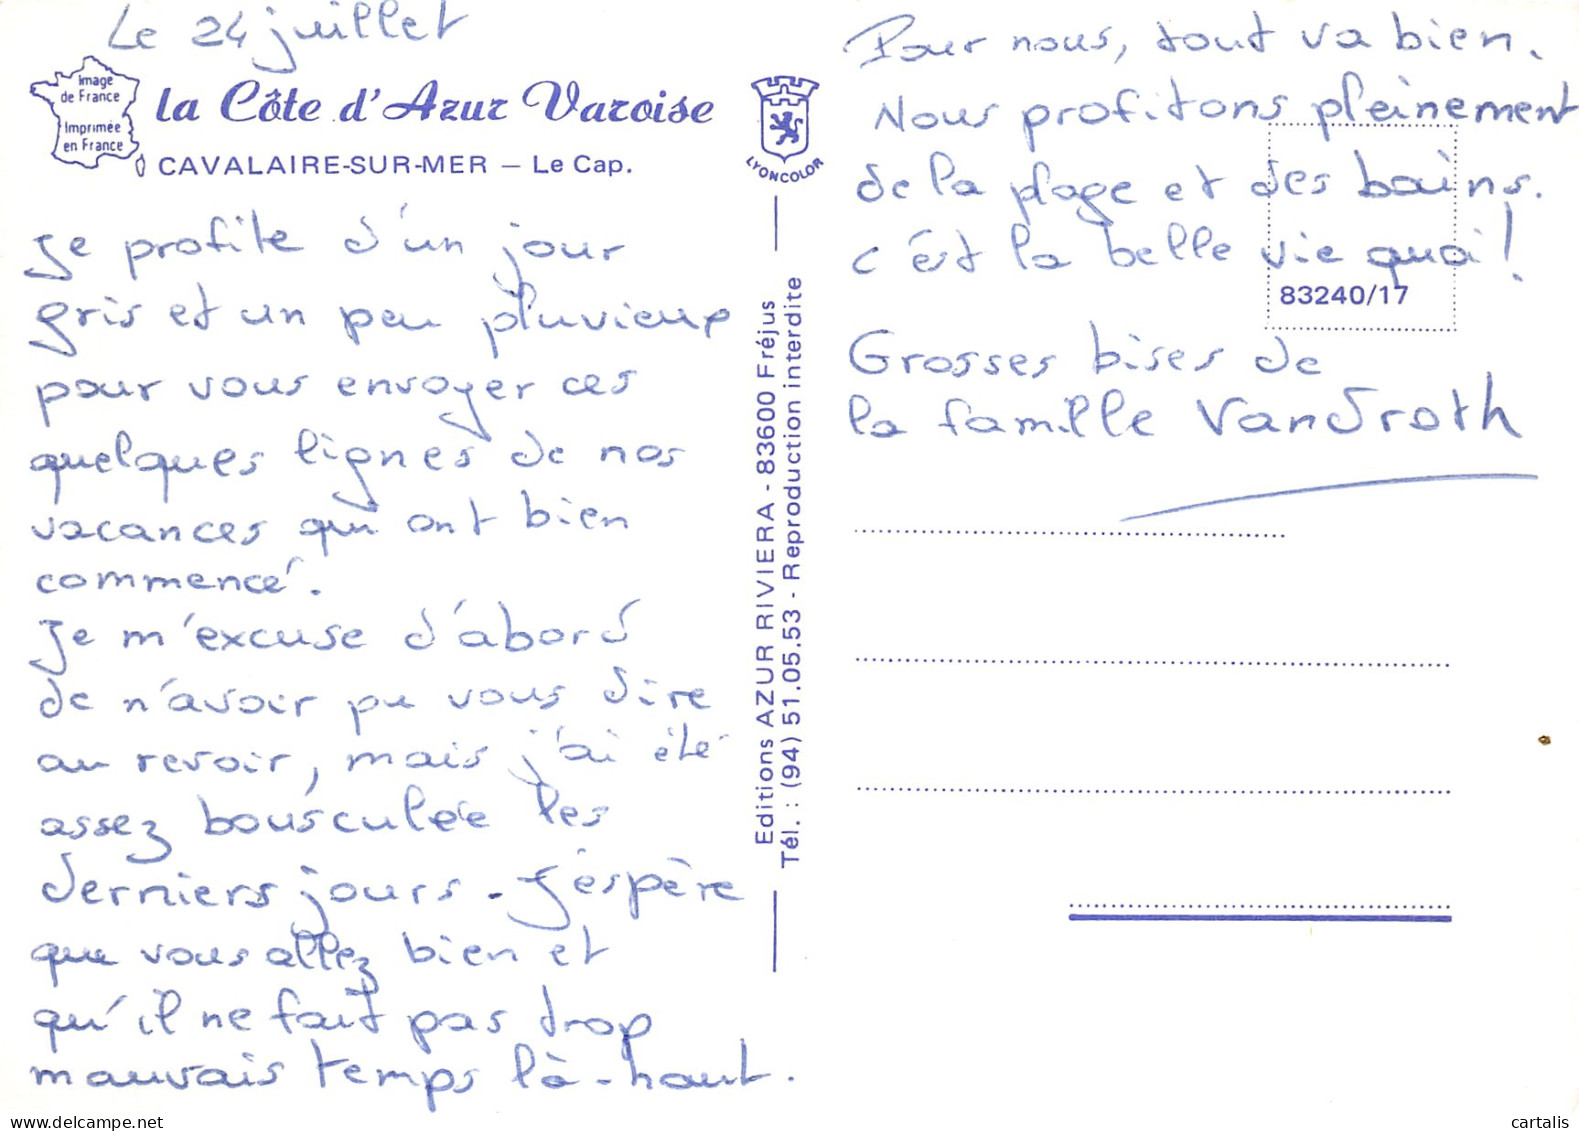 Le 24 juillet
Image
de France
Imprimée
en France
la Côte d'Azur Varoise
CAVALAIRE-SUR-MER – Le Cap.
LYONCOLOR
Je profite d'un jour
gris et un peu pluvieux
pour vous envoyer ces
quelques lignes de nos
vacances qui ont bien
commencé.
Je m'excuse d'abord
de n'avoir pu vous dire
au revoir, mais j'ai été
assez bousculée les
derniers jours - J'espère
que vous allez bien et
qu'il ne fait pas trop
mauvais temps là-haut.
Editions AZUR RIVIERA - 83600 Fréjus
Tél. : (94) 51.05.53 - Reproduction interdite
Pour nous, tout va bien.
Nous profitons pleinement
de la plage et des bains.
c'est la belle vie quoi !
83240/17
Grosses bises de
la famille Vandroth
cartalis
delcampe.net